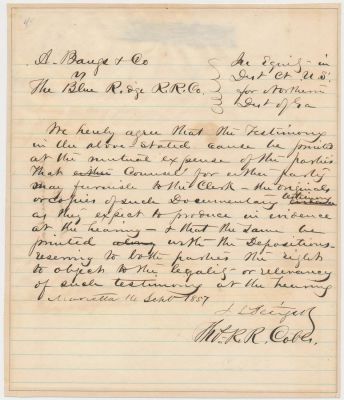 A. Bangs & Co
vs
The Blue Ridge R.R. Co.
In Equity - in
Dist Ct. U.S.
for Northern
Dist of Ga
We hereby agree that the Testimony
in the above stated cause be printed
at the mutual expense of the parties
that either Counsel for either party
may furnish to the Clerk - the originals
or copies of such Documentary testimony
as they expect to produce in evidence
at the hearing - & that the same be
printed along with the Depositions -
reserving to both parties the right
to object to the legality or relevancy
of such testimony at the hearing
Marietta 14 Sept 1857
Tho. R. R. Cobb.